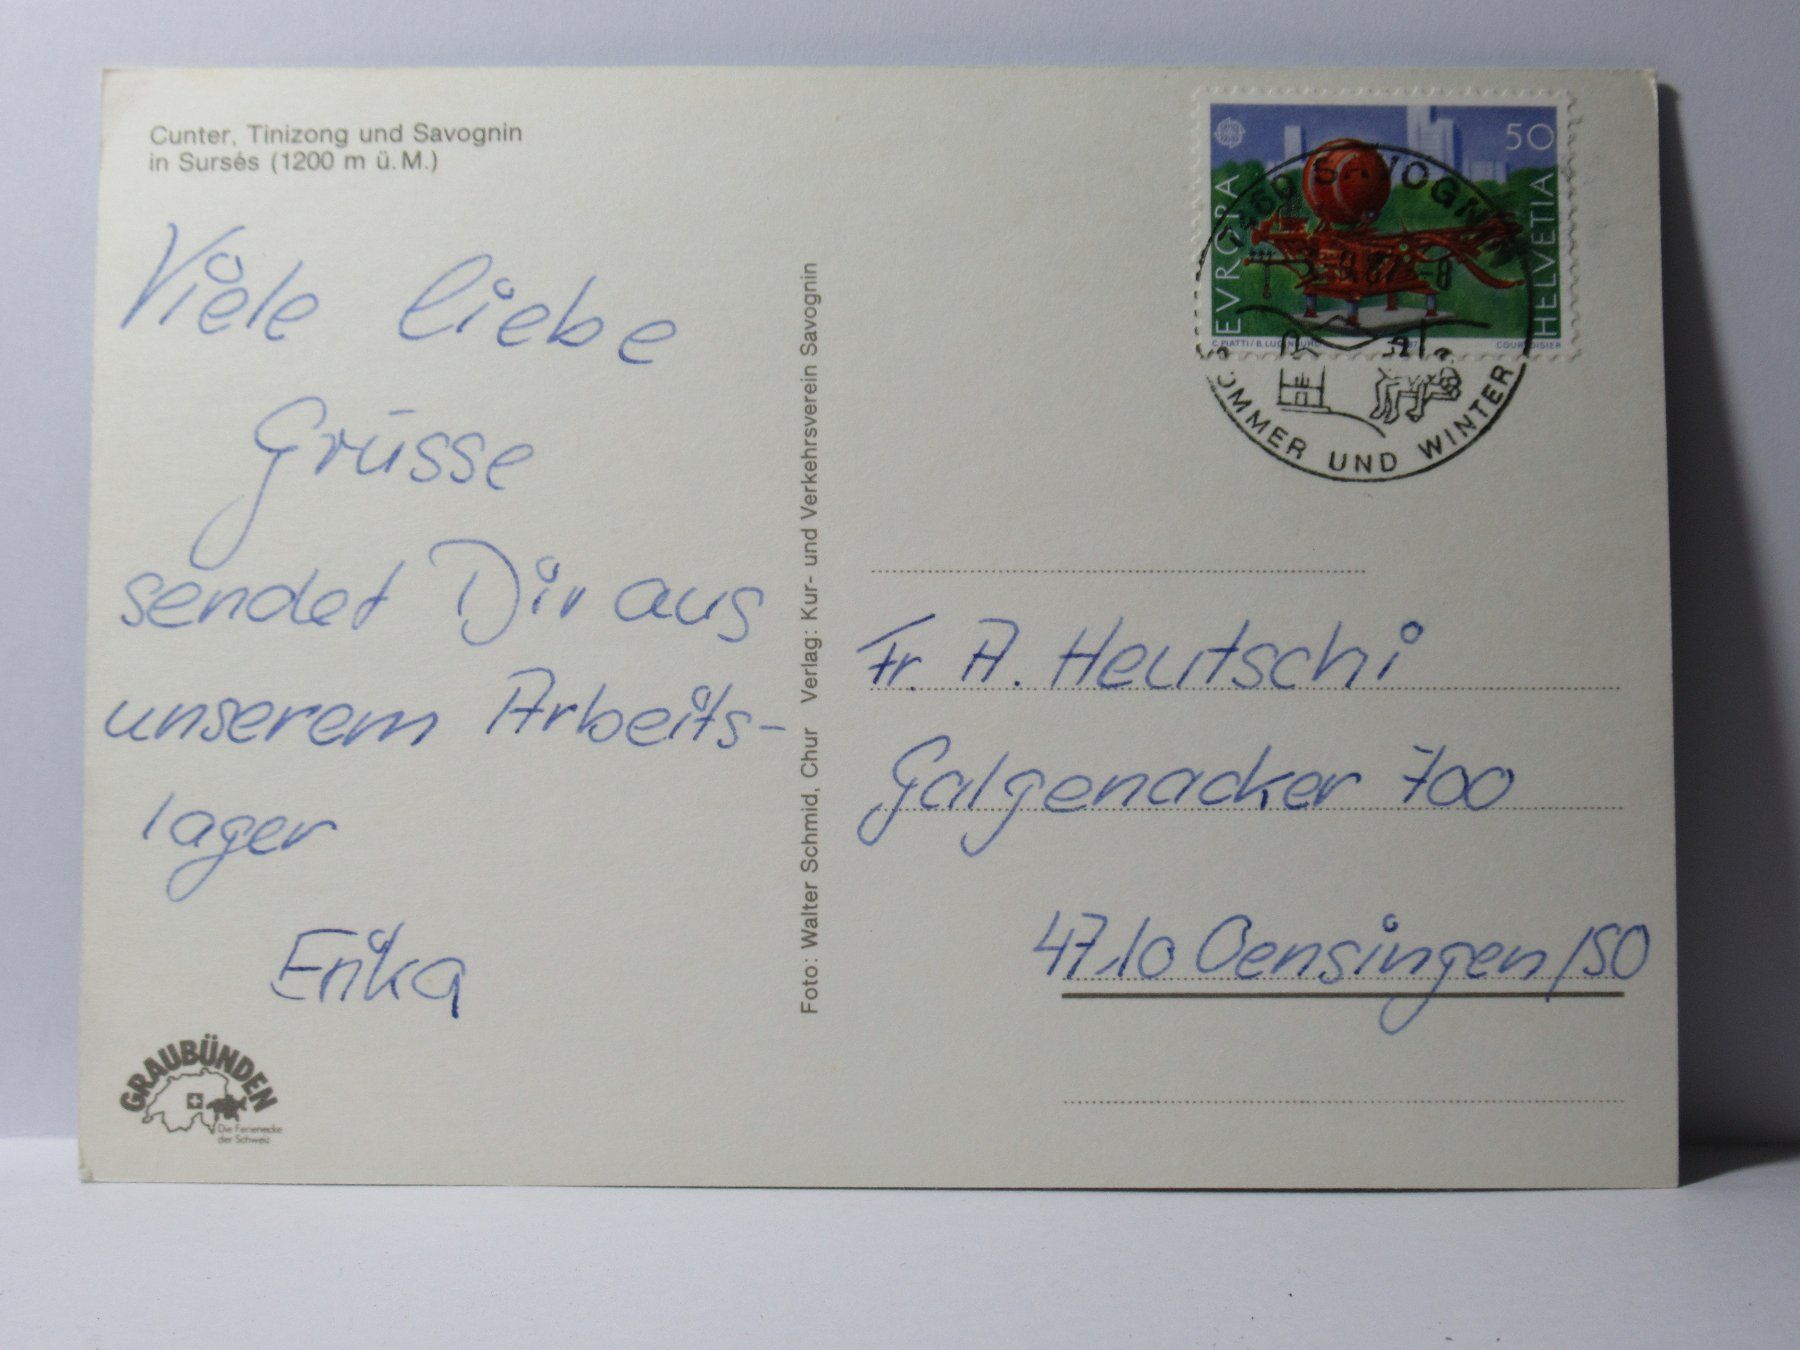 Cunter, Tinizong und Savognin
in Sursés (1200 m ü. M.)
Viele liebe
Grüsse
sendet Dir aus
unserem Arbeits-
lager
Erika
GRAUBÜNDEN
Die Ferienecke
der Schweiz
Foto: Walter Schmid, Chur Verlag: Kur- und Verkehrsverein Savognin
50
EVROPA
HELVETIA
C. PIATTI / B. LUGINBÜHL
COURVOISIER
7460 SAVOGNIN
SOMMER UND WINTER
Fr. A. Heutschi
Galgenacker 700
4710 Oensingen/SO